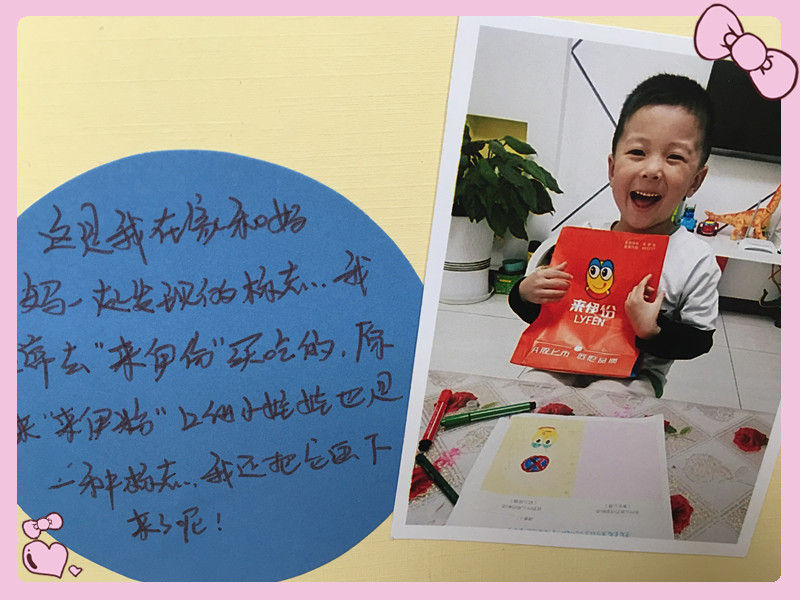 这是我在家和妈
妈一起发现的标志..我
常去“来伊份”买吃的,原
来“来伊份”上的小娃娃也是
一种标志..我还把它画下
来了呢!
来伊份
LYFEN